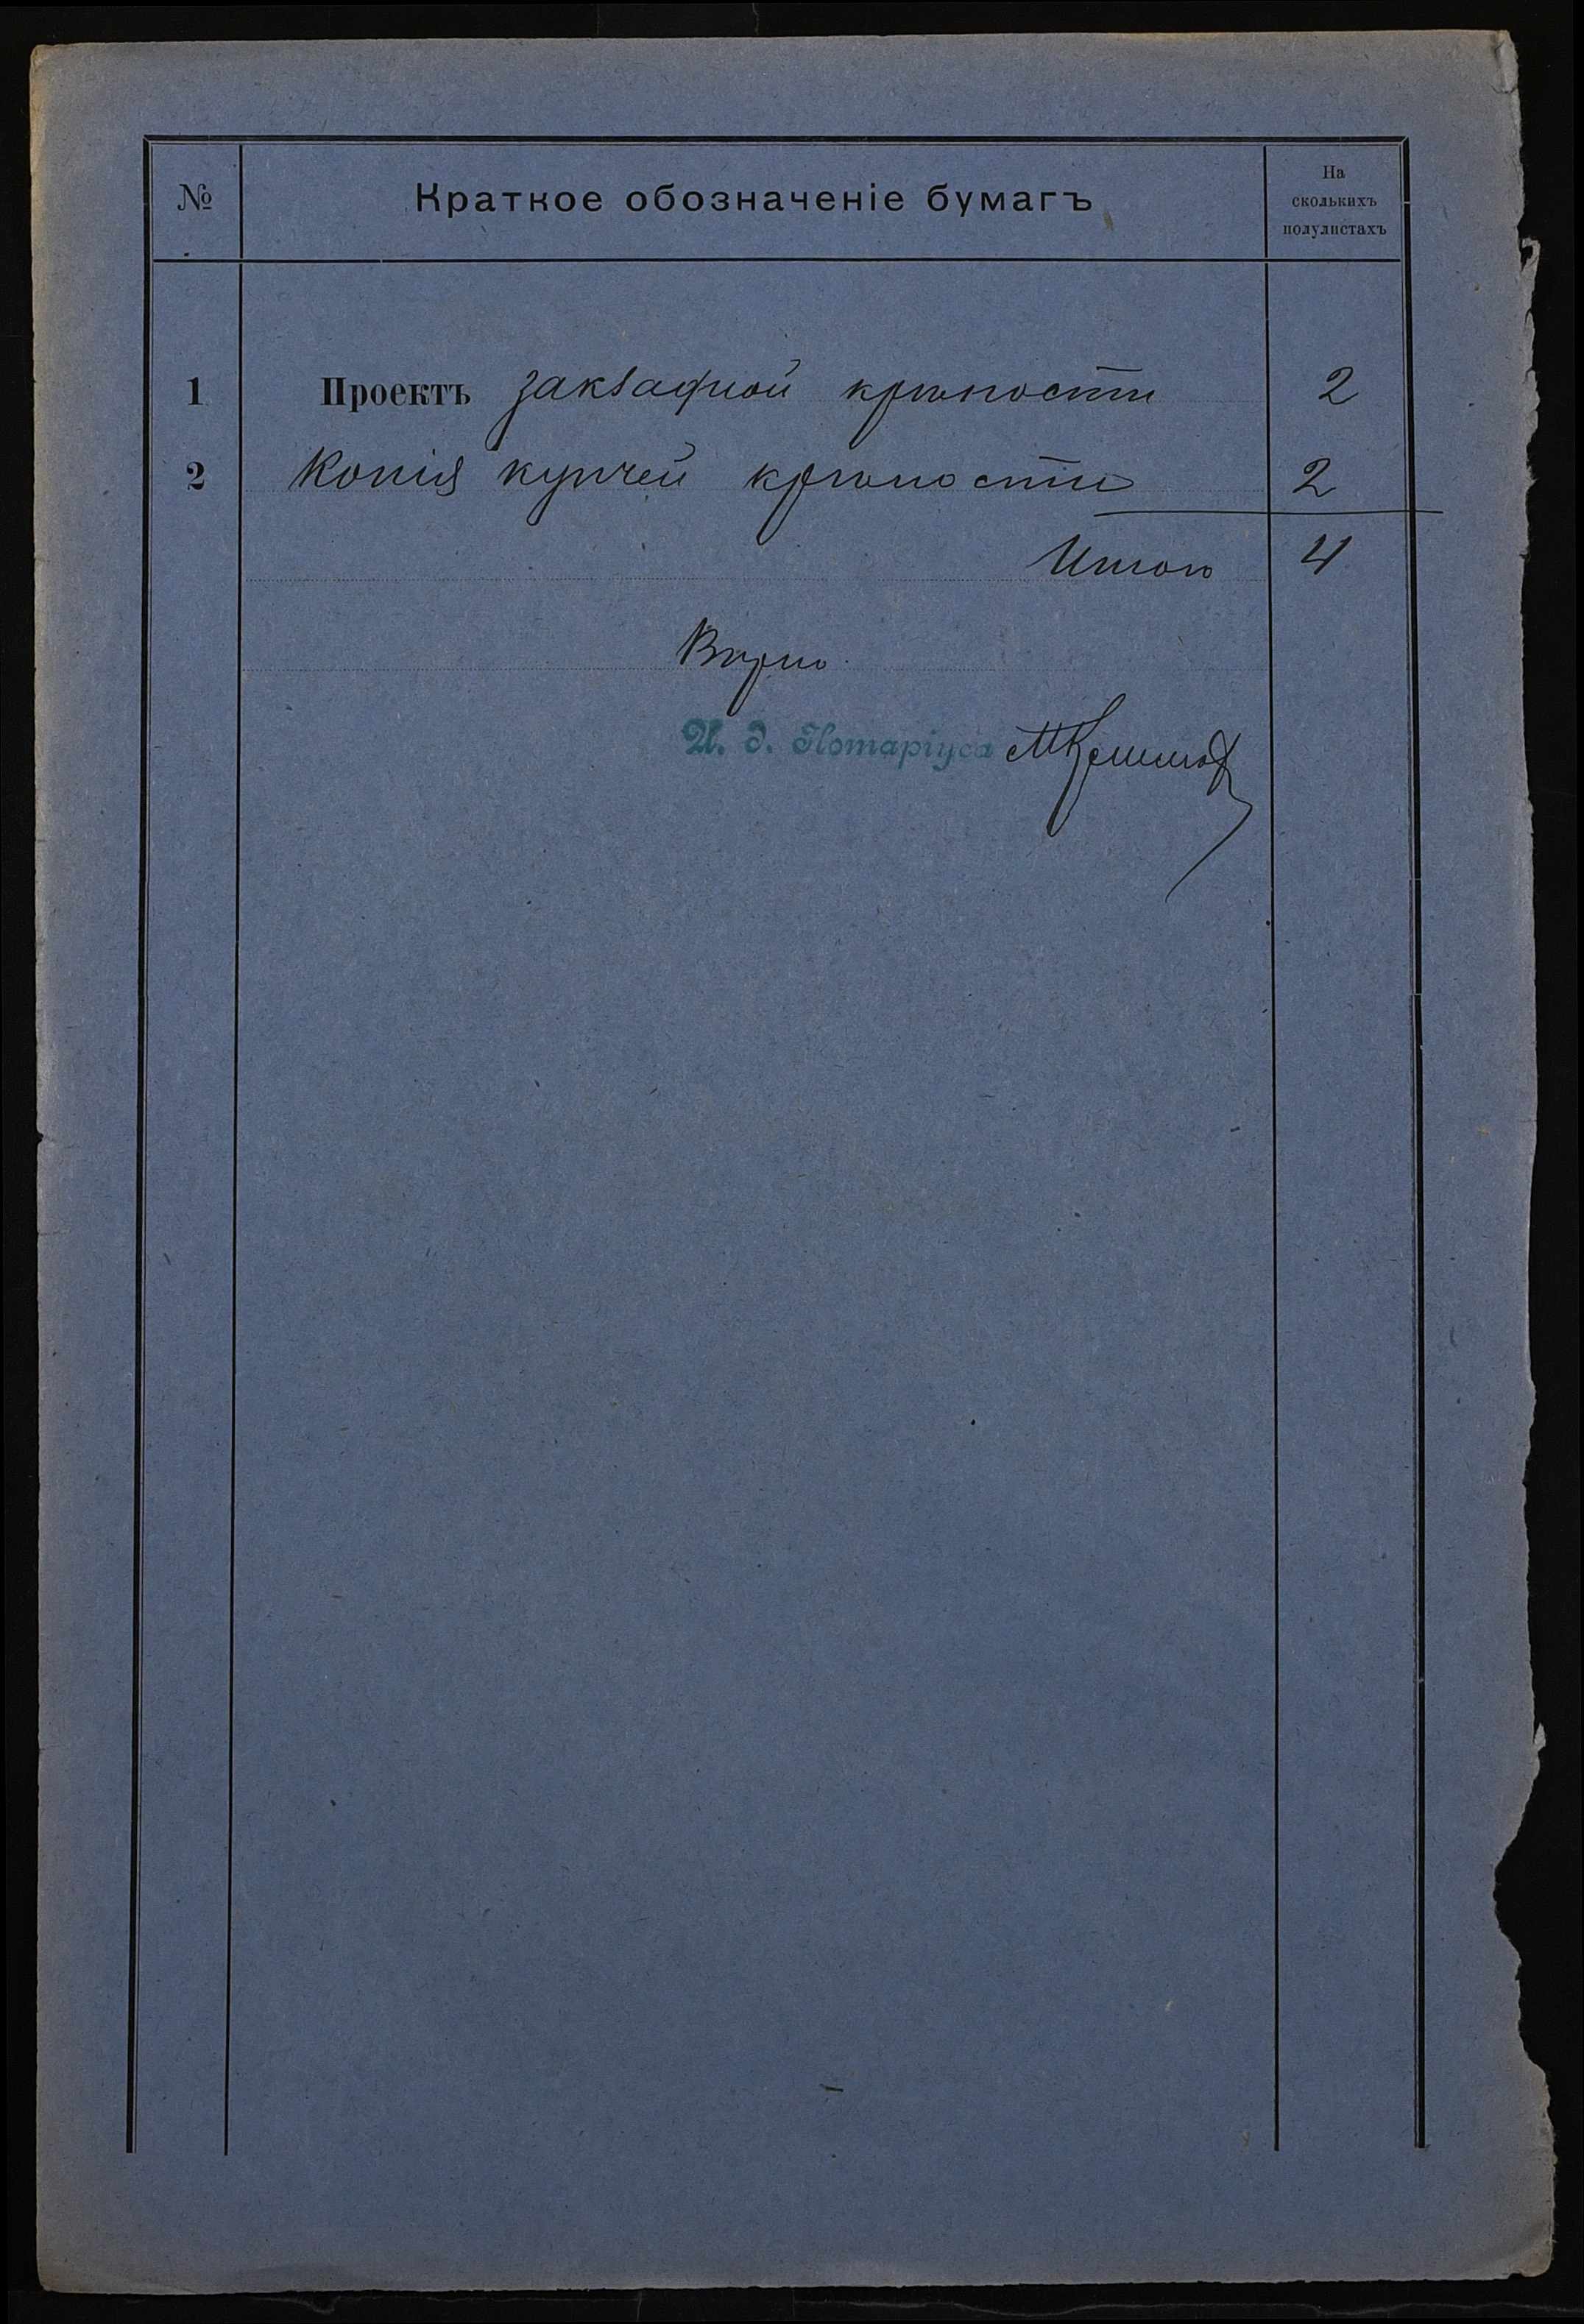 № Краткое обозначеніе бумагъ На
сколькихъ
полулистахъ
1 Проектъ закладной крѣпости 2
2 Копія купчей крѣпости 2
Итого 4
Вѣрно.
И. д. Нотаріуса